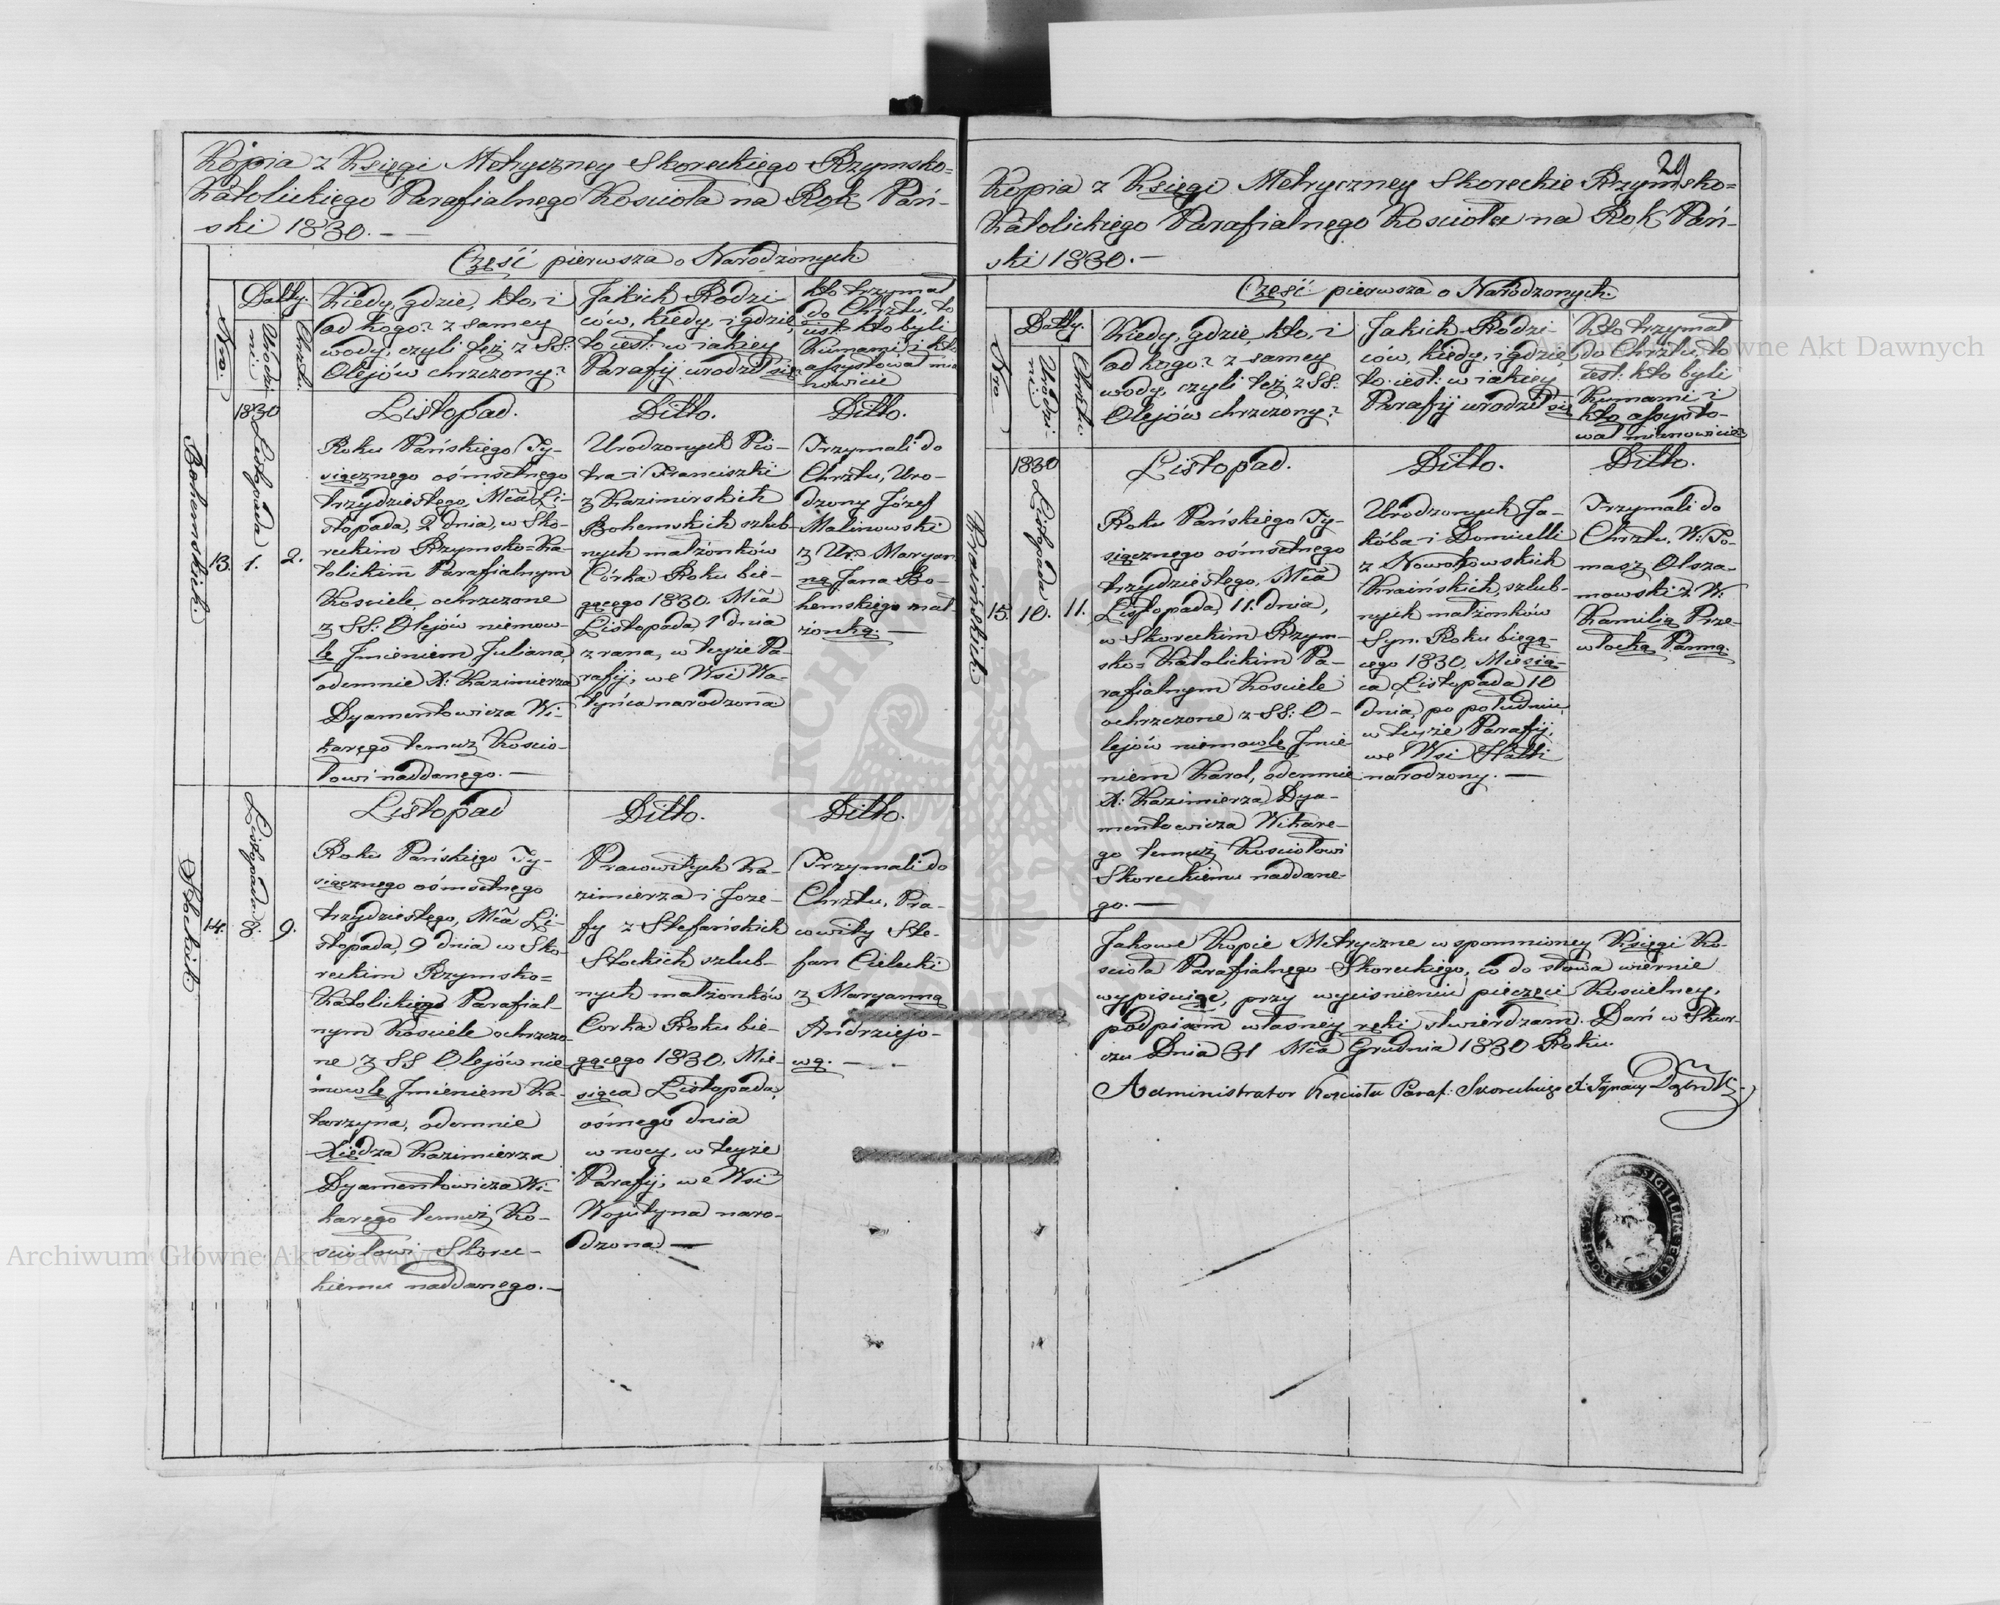 Kopia z Księgi Metryczney Skoreckiego Rzymsko=
Katolickiego Parafialnego Kościoła na Rok Pań-
ski 1830.
Część pierwsza o Narodzonych.
Nro.
Datty.
Urodze-
ni.
Chrztu.
Kiedy, gdzie, kto, i
od kogo? z samey
wody, czyli też z SS:
Olejów chrzczony?
Jakich Rodzi-
ców, kiedy, i gdzie,
to iest: w iakiey
Parafij urodził się
kto trzymał
do Chrztu, to
iest: kto byli
Kumami, i kto
assystował mia-
nowicie
Bohemskich.
13.
1830
Listopada
1.
2.
Listopad.
Roku Pańskiego Ty-
siącznego ośmsetnego
trzydziestego, Mca Li-
stopada, 2 dnia, w Sko-
reckim Rzymsko=Ka-
tolickim Parafialnym
Kosciele, ochrzczone
z SS: Olejów niemow-
lę Jmieniem Juliana,
odemnie X: Kazimierza
Dyamentowicza Wi-
karego temuz Koscio-
łowi naddanego. —
Ditto.
Urodzonych Pio-
tra i Franciszki
z Kazimirskich
Bohemskich szlub-
nych małżonków
Córka Roku bie-
gącego 1830. Mca
Listopada, 1 dnia
z rana, w teyże Pa-
rafij, we Wsi Wa-
tyńca narodzona
Ditto.
Trzymali do
Chrztu, Uro-
dzony Józef
Malinowski
z Ur: Maryan-
ną Jana Bo-
hemskiego mał-
żonką. —
Słockich
14.
Listopada 8.
9.
Listopad
Roku Pańskiego Ty-
siącznego ośmsetnego
trzydziestego, Mca Li-
stopada, 9 dnia w Sko-
reckim Rzymsko=
Katolickiego Parafial-
nym Kosciele ochrzczo-
ne z SS Olejów nie-
mowlę Jmieniem Ka-
tarzyna, odemnie
Xiędza Kazimierza
Dyamentowicza Wi-
karego temuz Ko-
sciołowi Skorec-
kiemu naddanego. —
Ditto.
Pracowitych Ka-
zimierza i Joze-
fy z Stefańskich
Słockich szlub-
nych małżonków
Corka Roku bie-
gącego 1830, Mie-
siąca Listopada,
ośmego dnia
w nocy, w teyże
Parafij, we Wsi
Wojutyna naro-
dzona —
Ditto.
Trzymali do
Chrztu, Pra-
cowity Ste-
fan Cielecki
z Maryanną
Andrziejo-
wą. —
29
Kopia z Księgi Metryczney Skoreckie Rzymsko=
Katolickiego Parafialnego Kościoła na Rok Pań-
ski 1830. —
Część pierwsza o Narodzonych.
Nro
Datty.
Urodze-
ni.
Chrztu.
Kiedy, gdzie, kto, i
od kogo? z samey
wody, czyli też z SS:
Olejów chrzczony?
Jakich Rodzi-
ców, kiedy, i gdzie
to iest: w iakiey
Parafij urodził się
Kto trzymał
do Chrztu, to
iest: kto byli
Kumami i
kto assysto-
wał mianowicie
Kraińskich
15.
1830
Listopada
10.
11.
Listopad.
Roku Pańskiego Ty-
siącznego ośmsetnego
trzydziestego, Mca
Listopada, 11. dnia,
w Skoreckim Rzym-
sko= Katolickim Pa-
rafialnym Kosciele
ochrzczone z SS: O-
lejów niemowlę Jmie-
niem Karol, odemnie
X: Kazimierza Dya-
mentowicza Wikare-
go temuz Kosciołowi
Skoreckiemu naddane-
go. —
Ditto.
Urodzonych Ja-
kóba i Domicelli
z Nowokowskich
Kraińskich, szlub-
nych małżonków
Syn. Roku biegą-
cego 1830, Miesią-
ca Listopada 10
dnia, po południu,
w teyże Parafij,
we Wsi Hatki
narodzony. —
Ditto.
Trzymali do
Chrztu, W: To-
masz Olsza-
mowski z W:
Kamilią Prze-
włocką Panną.
Jakowe Kopie Metryczne w spomnioney Księgi Ko-
scioła Parafialnego Skoreckiego, co do słowa wiernie
wypisuiąc, przy wycisnieniu pieczęci Koscielney,
podpisem własney ręki stwierdzam. Dań w Skor-
czu Dnia 31 Mca Grudnia 1830 Roku.
Administrator Koscioła Paraf: Skoreckiego X: Ignacy
SIGILLUM ECCLE
Archiwum Główne Akt Dawnych
Archiwum Główne Akt Dawnych